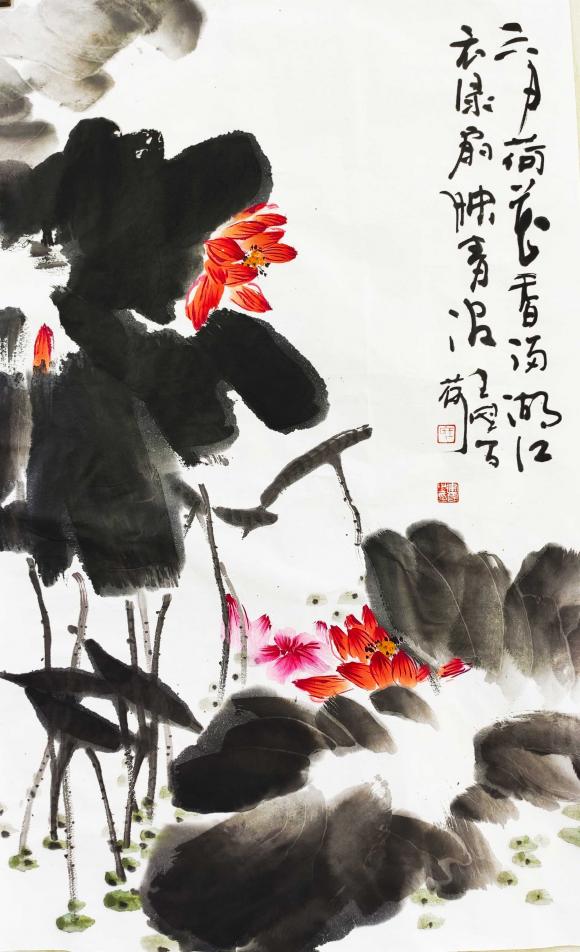 六月荷花香满湖红
衣绿扇映青波
荷